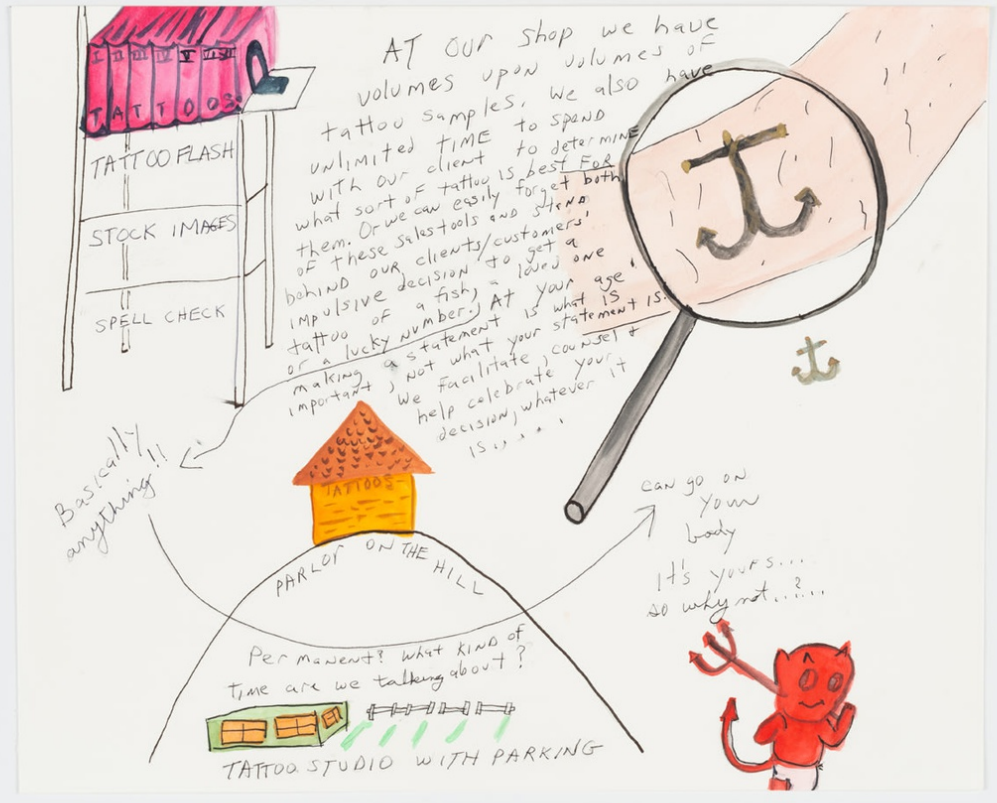 I II III IV V VI VII
TATTOOS
TATTOO FLASH
STOCK IMAGES
SPELL CHECK
AT our shop we have
volumes upon volumes of
tattoo samples. We also have
unlimited TIME to spend
with our client to determine
what sort of tattoo is best for
them. Or we can easily forget both
of these sales tools and stand
behind our clients/customers'
impulsive decision to get a
tattoo of a fish, a loved one
or a lucky number. At your age
making a statement is what is
important, not what your statement is.
We facilitate, counsel &
help celebrate your
decision, whatever it
is.....
Basically
anything!!
can go on
your
body
It's yours....
so why not...?...
TATTOOS
PARLOR ON THE HILL
Permanent? What kind of
time are we talking about?
TATTOO STUDIO WITH PARKING